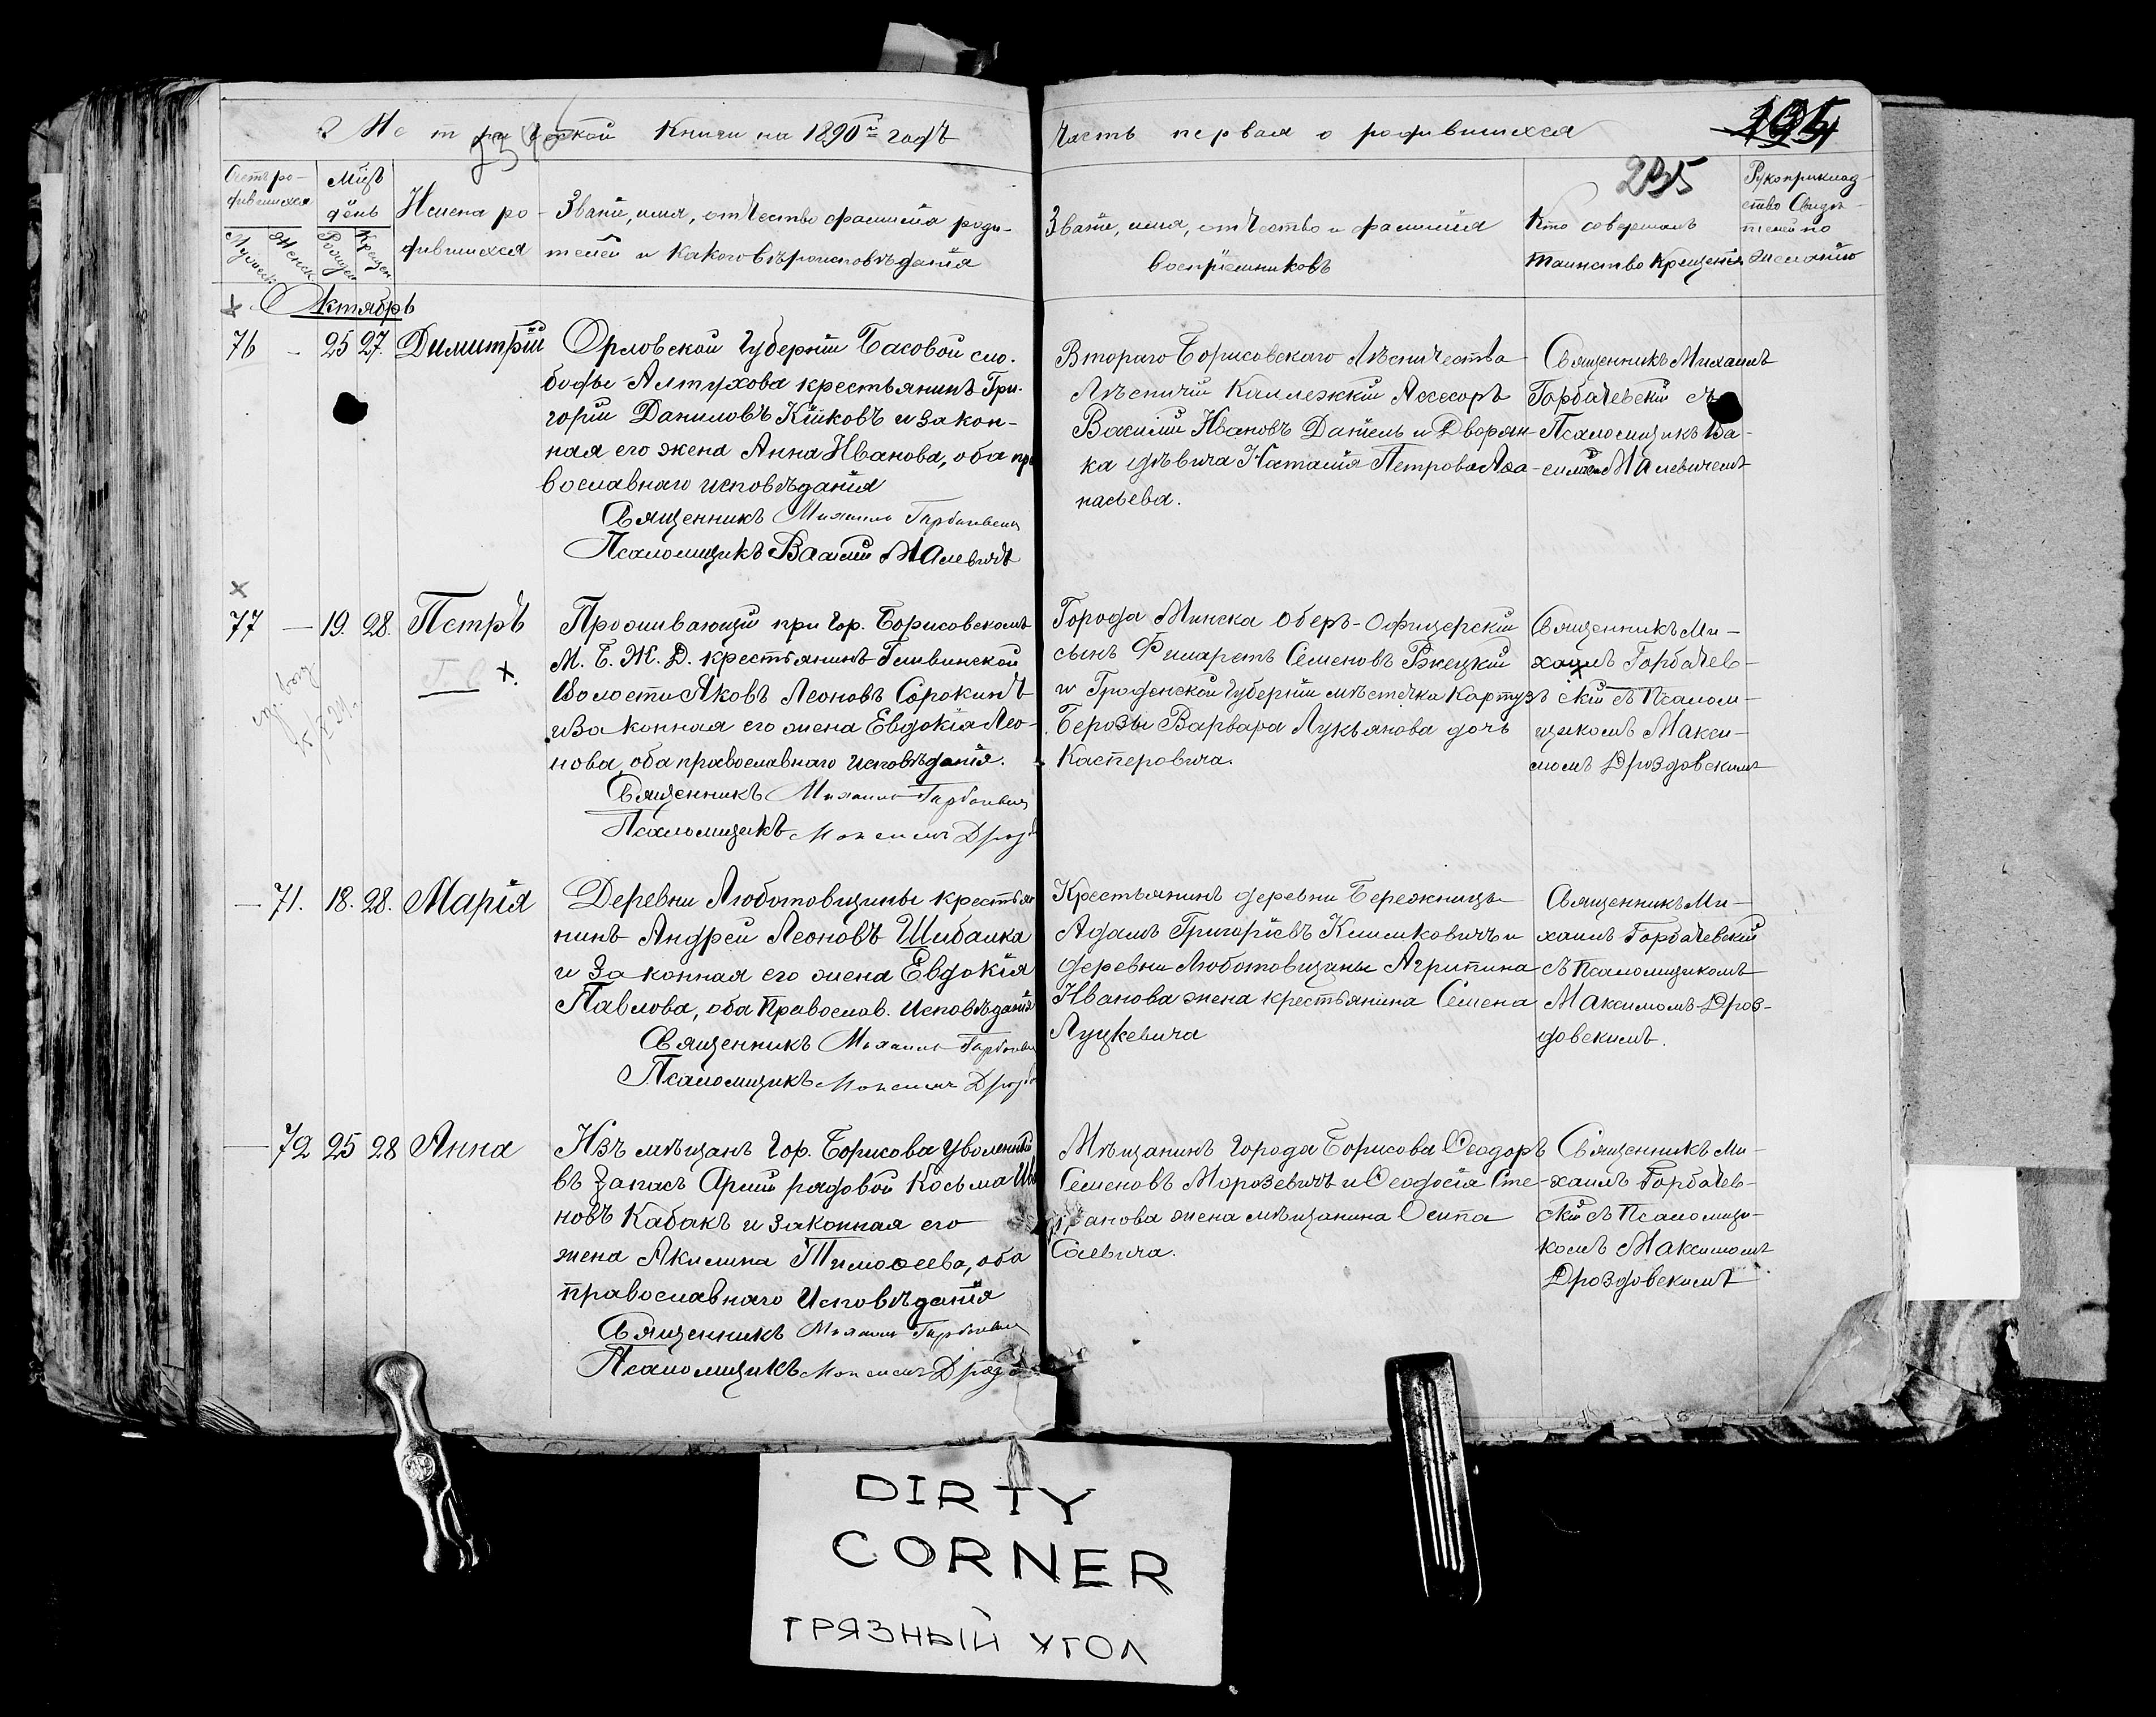 Метрической Книги на 1890й годъ
Часть первая о родившихся
235
Счетъ ро-
дившихся
Мужеск.
Женск.
Мѣцъ
день
Рожден.
Крещен.
Имена ро-
дившихся
Званіе, имя, отчество фамилія роди-
телей и какого вѣроисповѣданія
Званіе, имя, отчество и фамилія
воспріемниковъ
Кто совершалъ
таинство Крещенія
Рукоприклад-
ство Свидѣ-
телей по
желанію
Октябрь
76 - 25 27. Димитрій
Орловской Губерніи Басовой сло-
боды Алтухова крестьянинъ Гри-
горій Даниловъ и закон-
ная его жена Анна Иванова, оба пра
вославнаго исповѣданія
Священникъ Михаилъ Горбачевскій
Псаломщикъ Василій Малевичъ
Втораго Борисовскаго Лѣсничества
Лѣсничій Коллежскій Ассесоръ
Василій Ивановъ Даніель и Дворян-
ка дѣвица Наталія Петрова Аѳа-
насьева.
Священникъ Михаилъ
Горбачевскій съ
Псаломщикъ Ва-
силіемъ Малевичемъ
77 — 19. 28. Петръ
Проживающій при гор. Борисовскомъ
М. Б. Ж. Д. крестьянинъ Гливинской
Волости Яковъ Леоновъ Сорокинъ
и Законная его жена Евдокія Лео-
нова, оба православнаго исповѣданія.
Священникъ Михаилъ Горбачевскій
Псаломщикъ Максимъ Дрозд
Города Минска Оберъ-Офицерскій
сынъ Филаретъ Семеновъ Ржецкій
и Гродненской Губерніи мѣстечка Картузъ
Березы Варвара Лукьянова дочь
Касперовича.
Священникъ Ми-
хаилъ Горбачев-
скій съ Псалом-
щикомъ Макси-
момъ Дроздовскимъ
— 71. 18. 28. Марія
Деревни Любатовщины крестья
нинъ Андрей Леоновъ Шибалка
и Законная его жена Евдокія
Павлова, оба Православ. Исповѣданія
Священникъ Михаилъ Горбачевскій
Псаломщикъ Максимъ Дрозд
Крестьянинъ деревни Бережницы
Адамъ Григорьевъ Климковичъ и
деревни Любатовщины Агрипина
Иванова жена крестьянина Семена
Луцкевича
Священникъ Ми-
хаилъ Горбачевскій
съ Псаломщикомъ
Максимомъ Дроз-
довскимъ.
— 72 25 28 Анна
Изъ мѣщанъ Гор. Борисова Уволенный
въ Запасъ Арміи рядовой Косьма Ива
новъ Кабакъ и Законная его
жена Акилина Тимоѳеева, оба
православнаго Исповѣданія
Священникъ Михаилъ Горбачевскій
Псаломщикъ Максимъ Дрозд
Мѣщанинъ города Борисова Ѳеодоръ
Семеновъ Морозевичъ и Ѳеодосія Сте-
фанова жена мѣщанина Осипа
Священникъ Ми-
хаилъ Горбачев-
скій съ Псаломщи-
комъ Максимомъ
Дроздовскимъ
DIRTY
CORNER
ГРЯЗНЫЙ УГОЛ